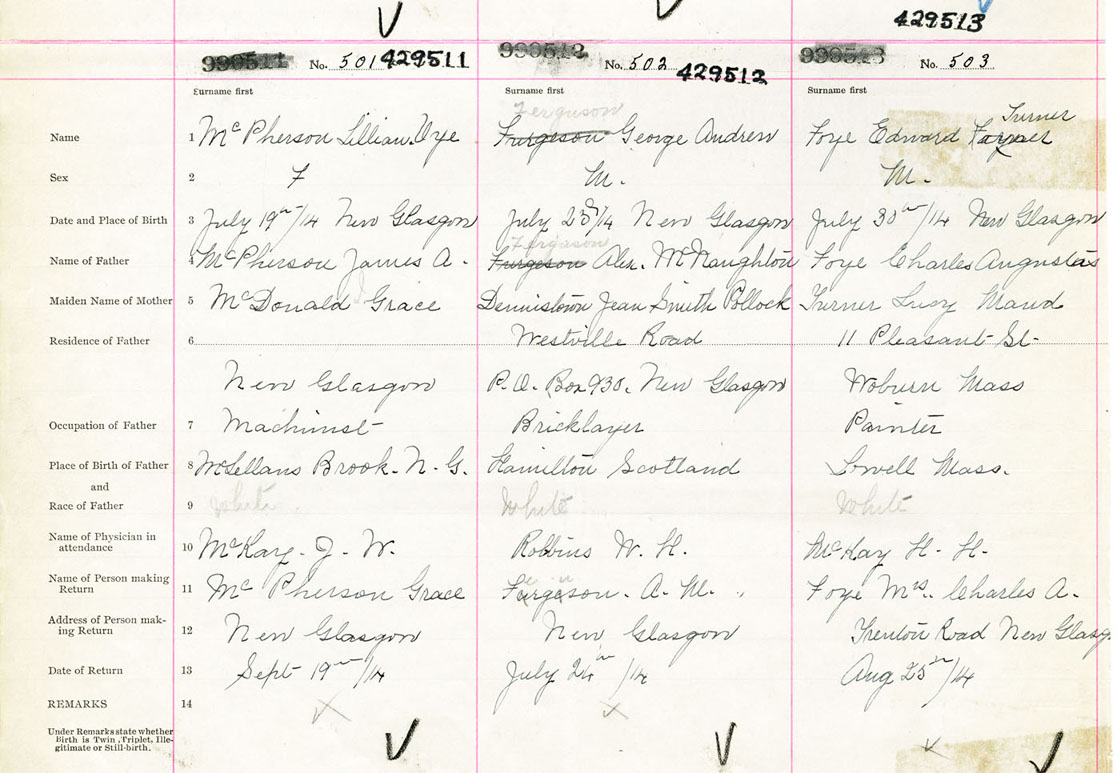 429513
999511 No. 501 429511 999512 No. 502 429512 999513 No. 503
Surname first Surname first Surname first
Ferguson Turner
Name 1 McPherson Lillian Furgeson George Andrew Foye Edward
Sex 2 F M. M.
Date and Place of Birth 3 July 19th/14 New Glasgow July /14 New Glasgow July 30th/14 New Glasgow
Ferguson
Name of Father 4 McPherson James A. Furgeson Alex. McNaughton Foye Charles Angustas
Maiden Name of Mother 5 McDonald Grace Dennistown Jean Smith Pollock Turner Lucy Maud
Residence of Father 6 Westville Road 11 Pleasant St-
New Glasgow P.O. Box 930. New Glasgow Woburn Mass
Occupation of Father 7 Machinist Bricklayer Painter
Place of Birth of Father 8 McLellans Brook. N. G. Hamilton Scotland Lowell Mass.
and
Race of Father 9 White White White
Name of Physician in
attendance 10 McKay. J. W. Robbins W. H. McKay H. H.
Name of Person making
Return 11 McPherson Grace Furgeson. A. M. Foye Mrs. Charles A.
Address of Person mak-
ing Return 12 New Glasgow New Glasgow Trenton Road New Glasg
Date of Return 13 Sept 19th/14 July 24th/14 Aug 25th/14
REMARKS 14
Under Remarks state whether
Birth is Twin, Triplet, Ille-
gitimate or Still-birth.